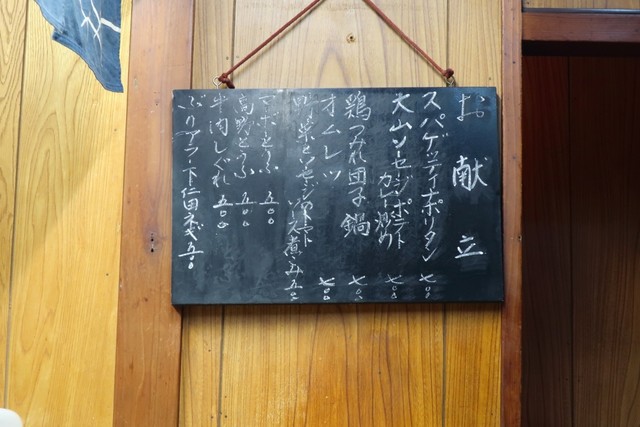 お献立
スパゲッティナポリタン 七〇〇
大山ソーセージ・ポテト
カレー炒め 七〇〇
鶏つみれ団子鍋 七〇〇
オムレツ 七〇〇
野菜とソーセージのトマト
ソース煮こみ 五〇〇
マーボーとうふ 五〇〇
高野どうふ 五〇〇
牛肉しぐれ 五〇〇
ぶりアラ・下仁田ネギ 五〇〇